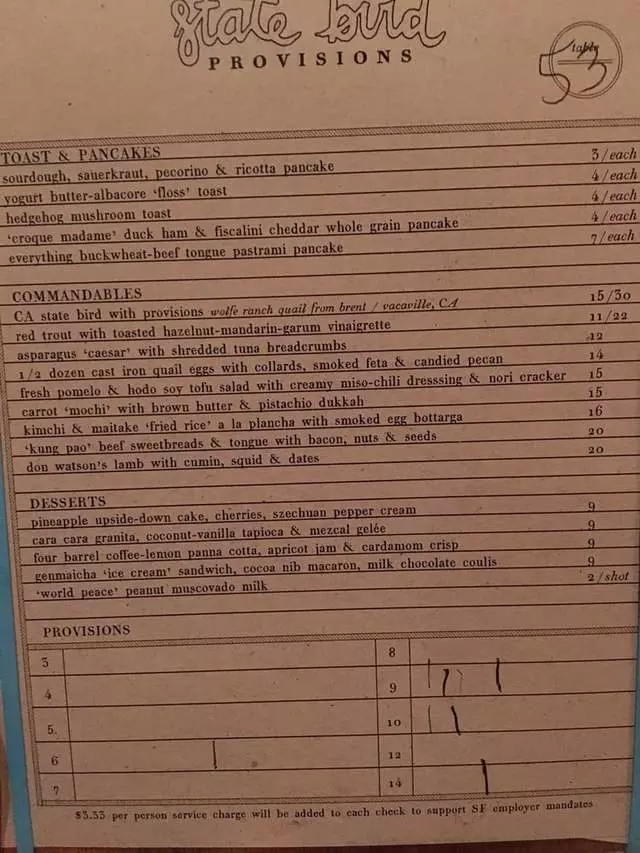 state bird
PROVISIONS
table
53
TOAST & PANCAKES
sourdough, sauerkraut, pecorino & ricotta pancake 3/each
yogurt butter-albacore ‘floss’ toast 4/each
hedgehog mushroom toast 4/each
‘croque madame’ duck ham & fiscalini cheddar whole grain pancake 4/each
everything buckwheat-beef tongue pastrami pancake 7/each
COMMANDABLES
CA state bird with provisions wolfe ranch quail from brent / vacaville, CA 15/30
red trout with toasted hazelnut-mandarin-garum vinaigrette 11/22
asparagus ‘caesar’ with shredded tuna breadcrumbs 12
1/2 dozen cast iron quail eggs with collards, smoked feta & candied pecan 14
fresh pomelo & hodo soy tofu salad with creamy miso-chili dresssing & nori cracker 15
carrot ‘mochi’ with brown butter & pistachio dukkah 15
kimchi & maitake ‘fried rice’ a la plancha with smoked egg bottarga 16
‘kung pao’ beef sweetbreads & tongue with bacon, nuts & seeds 20
don watson's lamb with cumin, squid & dates 20
DESSERTS
pineapple upside-down cake, cherries, szechuan pepper cream 9
cara cara granita, coconut-vanilla tapioca & mezcal gelée 9
four barrel coffee-lemon panna cotta, apricot jam & cardamom crisp 9
genmaicha ‘ice cream’ sandwich, cocoa nib macaron, milk chocolate coulis 9
‘world peace’ peanut muscovado milk 2/shot
PROVISIONS
3 8
4 9
5. 10
6 12
7 14
$3.33 per person service charge will be added to each check to support SF employer mandates